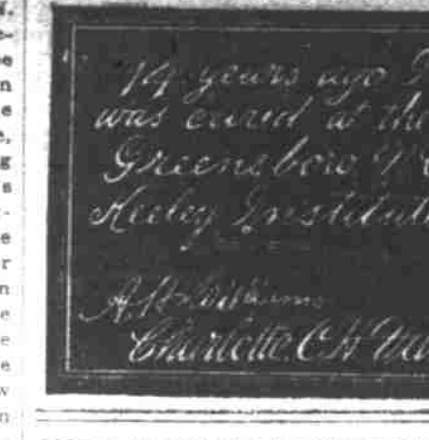 14 years ago
was cured at the
Greensboro N
Keeley Institut
Williams
Charlotte C. H.